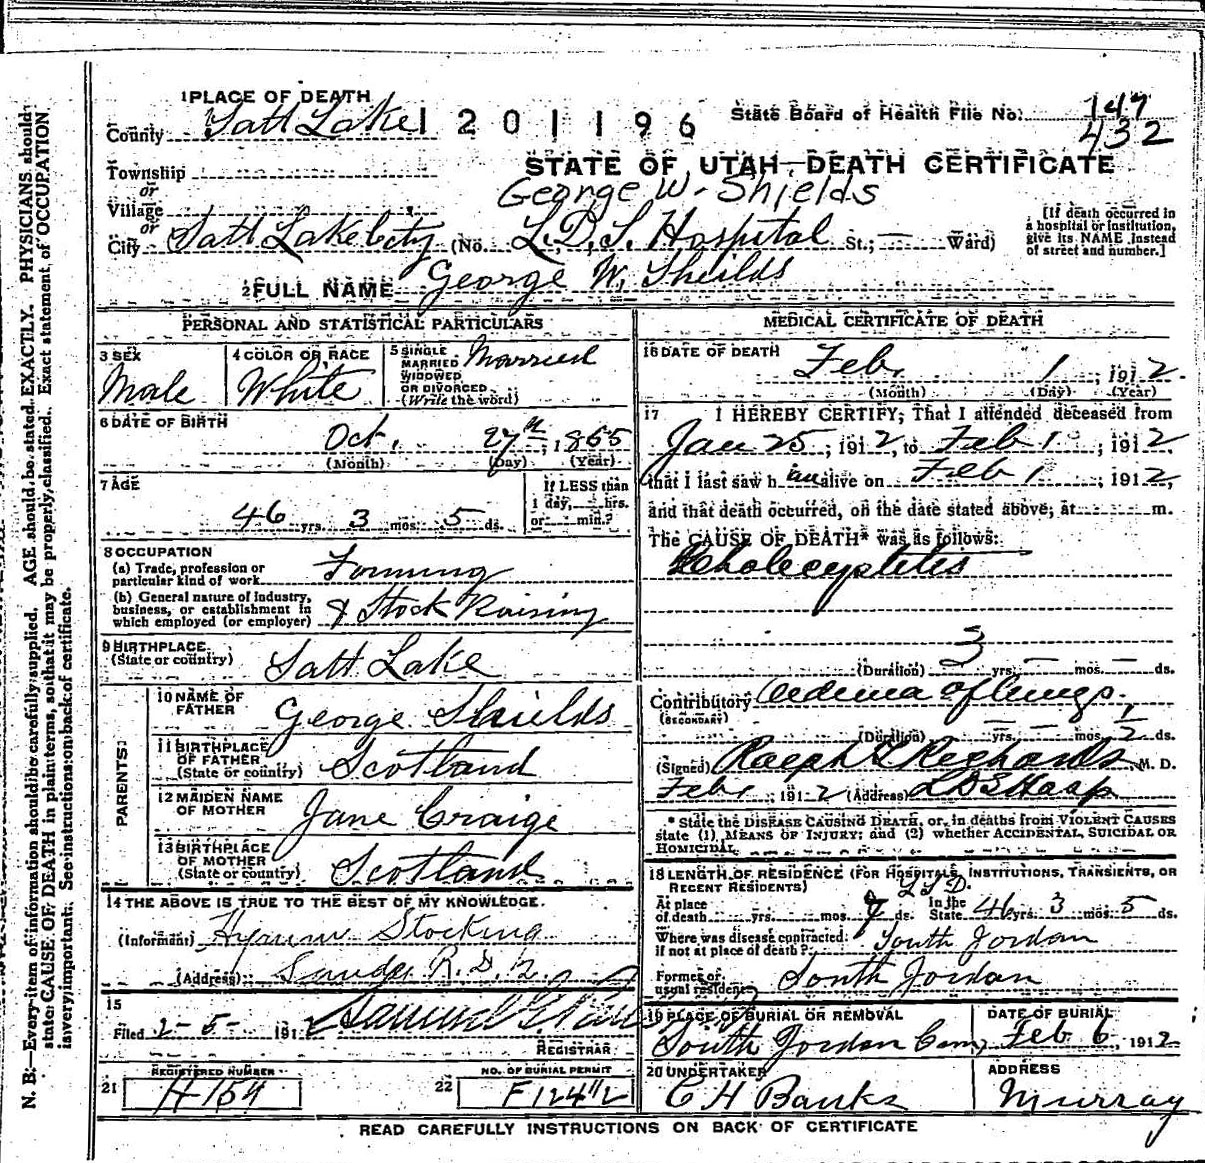 1 PLACE OF DEATH
County Salt Lake 1201196 State Board of Health File No. 147
432
Township
or
STATE OF UTAH—DEATH CERTIFICATE
George W. Shields
Village
or
City Salt Lake City (No. L.D.S. Hospital St.; — Ward)
[If death occurred in a hospital or institution, give its NAME instead of street and number.]
2 FULL NAME George W. Sheilds
PERSONAL AND STATISTICAL PARTICULARS
3 SEX
Male
4 COLOR OR RACE
White
5 SINGLE, MARRIED, WIDOWED OR DIVORCED (Write the word)
Married
6 DATE OF BIRTH
Oct. 27th, 1865
(Month) (Day) (Year)
7 AGE
46 yrs. 3 mos. 5 ds.
If LESS than 1 day, hrs. or min.?
8 OCCUPATION
(a) Trade, profession or particular kind of work Farming
(b) General nature of industry, business, or establishment in which employed (or employer) & Stock Raising
9 BIRTHPLACE
(State or country) Salt Lake
PARENTS
10 NAME OF FATHER George Shields
11 BIRTHPLACE OF FATHER (State or country) Scotland
12 MAIDEN NAME OF MOTHER Jane Craige
13 BIRTHPLACE OF MOTHER (State or country) Scotland
14 THE ABOVE IS TRUE TO THE BEST OF MY KNOWLEDGE.
(Informant) Hyrum Stocking
(Address) Sandy R.D. 2
15
Filed 2-5- 1912 Samuel G.
REGISTRAR
REGISTERED NUMBER
21 H154
NO. OF BURIAL PERMIT
22
MEDICAL CERTIFICATE OF DEATH
16 DATE OF DEATH
Feb. 1, 1912.
(Month) (Day) (Year)
17 I HEREBY CERTIFY, That I attended deceased from
Jan 25, 1912, to Feb 1, 1912
that I last saw him alive on Feb 1, 1912,
and that death occurred, on the date stated above, at m.
The CAUSE OF DEATH* was as follows:
Cholecystetis
(Duration) 3 yrs. — mos. — ds.
Contributory Oedema of lungs.
(SECONDARY)
(Duration) — yrs. — mos. 1/2 ds.
(Signed) Ralph T Richards M. D.
Feb 1, 1912 (Address) LDS Hosp
* State the DISEASE CAUSING DEATH, or, in deaths from VIOLENT CAUSES state (1) MEANS OF INJURY; and (2) whether ACCIDENTAL, SUICIDAL OR HOMICIDAL.
18 LENGTH OF RESIDENCE (FOR HOSPITALS, INSTITUTIONS, TRANSIENTS, OR RECENT RESIDENTS)
At place of death yrs. mos. 7 ds. In the State 46 yrs. 3 mos. 5 ds.
Where was disease contracted, if not at place of death? South Jordan
Former or usual residence South Jordan
19 PLACE OF BURIAL OR REMOVAL
South Jordan Cem,
DATE OF BURIAL
Feb 6, 1912
20 UNDERTAKER
C H Banks
ADDRESS
Murray
READ CAREFULLY INSTRUCTIONS ON BACK OF CERTIFICATE
N. B.—Every item of information should be carefully supplied. AGE should be stated EXACTLY. PHYSICIANS should
state CAUSE OF DEATH in plain terms, so that it may be properly classified. Exact statement of OCCUPATION
is very important. See instructions on back of certificate.